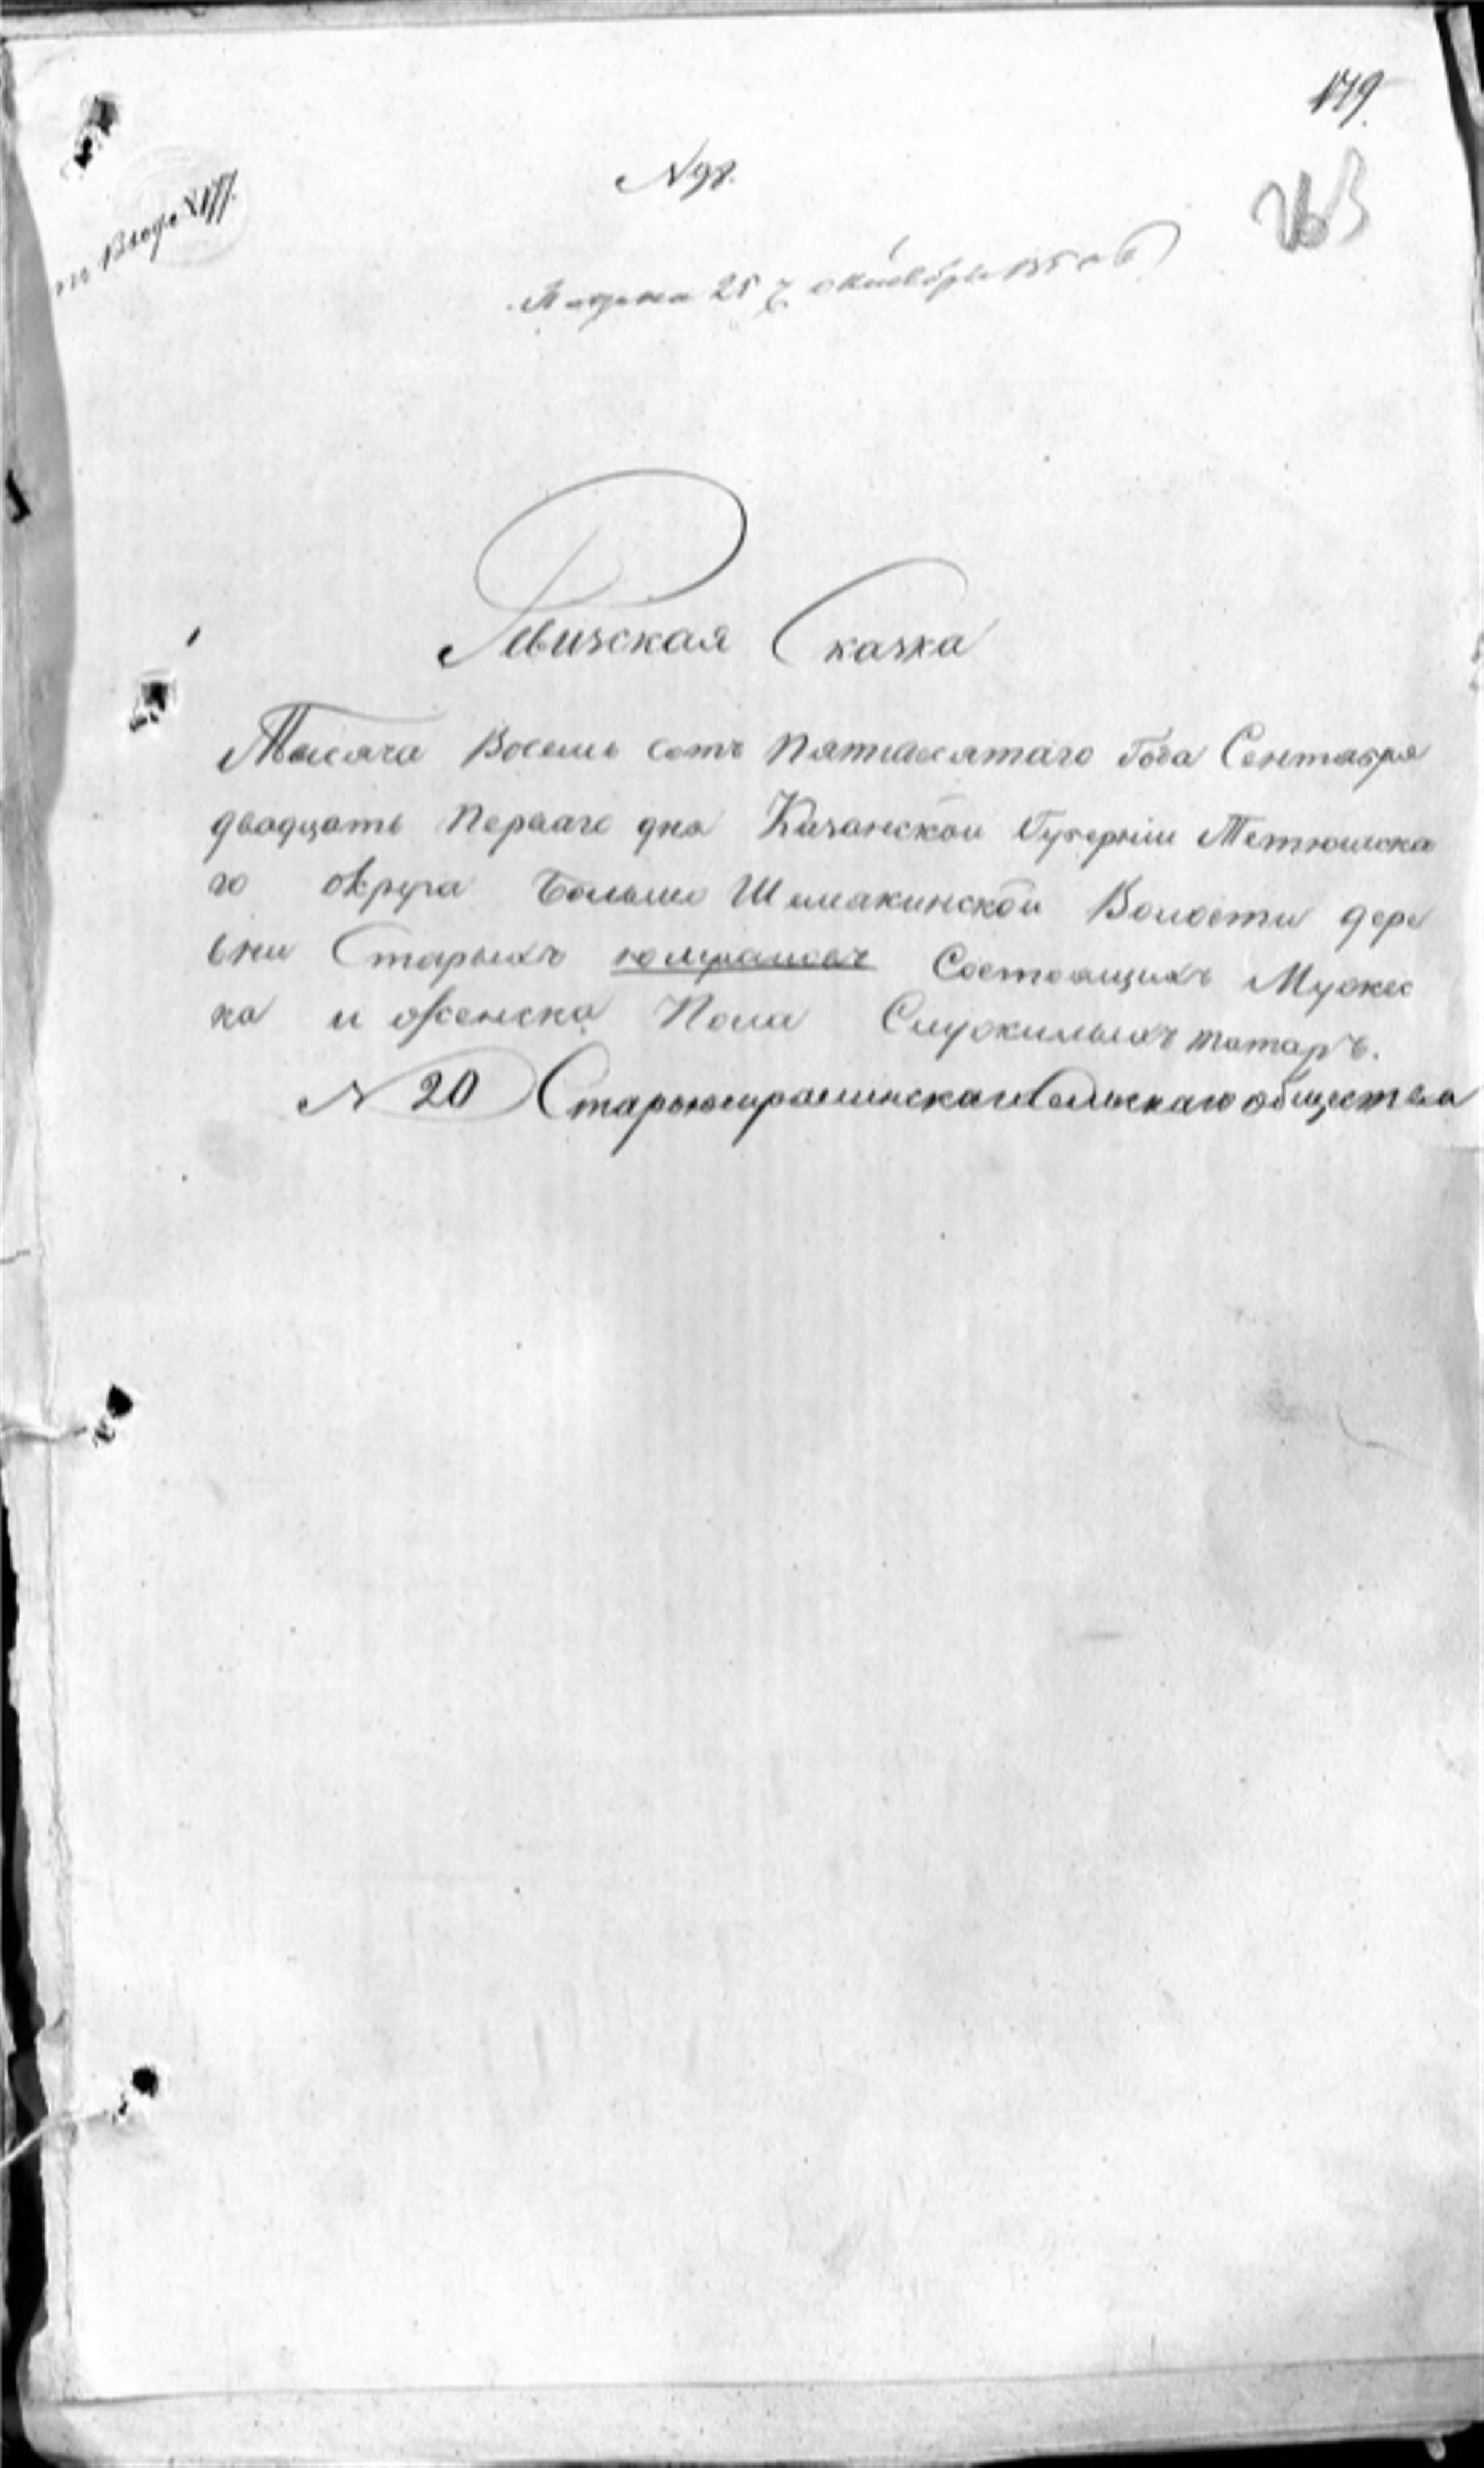 179.
N 98.
263
Подана 25 октября 1850
Ревизская Сказка
Тысяча Восемь сотъ Пятидесятаго Года Сентября
двадцать Перваго дня Казанской Губерніи Тетюшска
го округа Больше Шемякинской Волости дере
вни Старыхъ юмралов Состоящихъ Мужес
ка и женска Пола Служилыхъ татаръ.
N 20 Староюмралинскаго Сельскаго общества